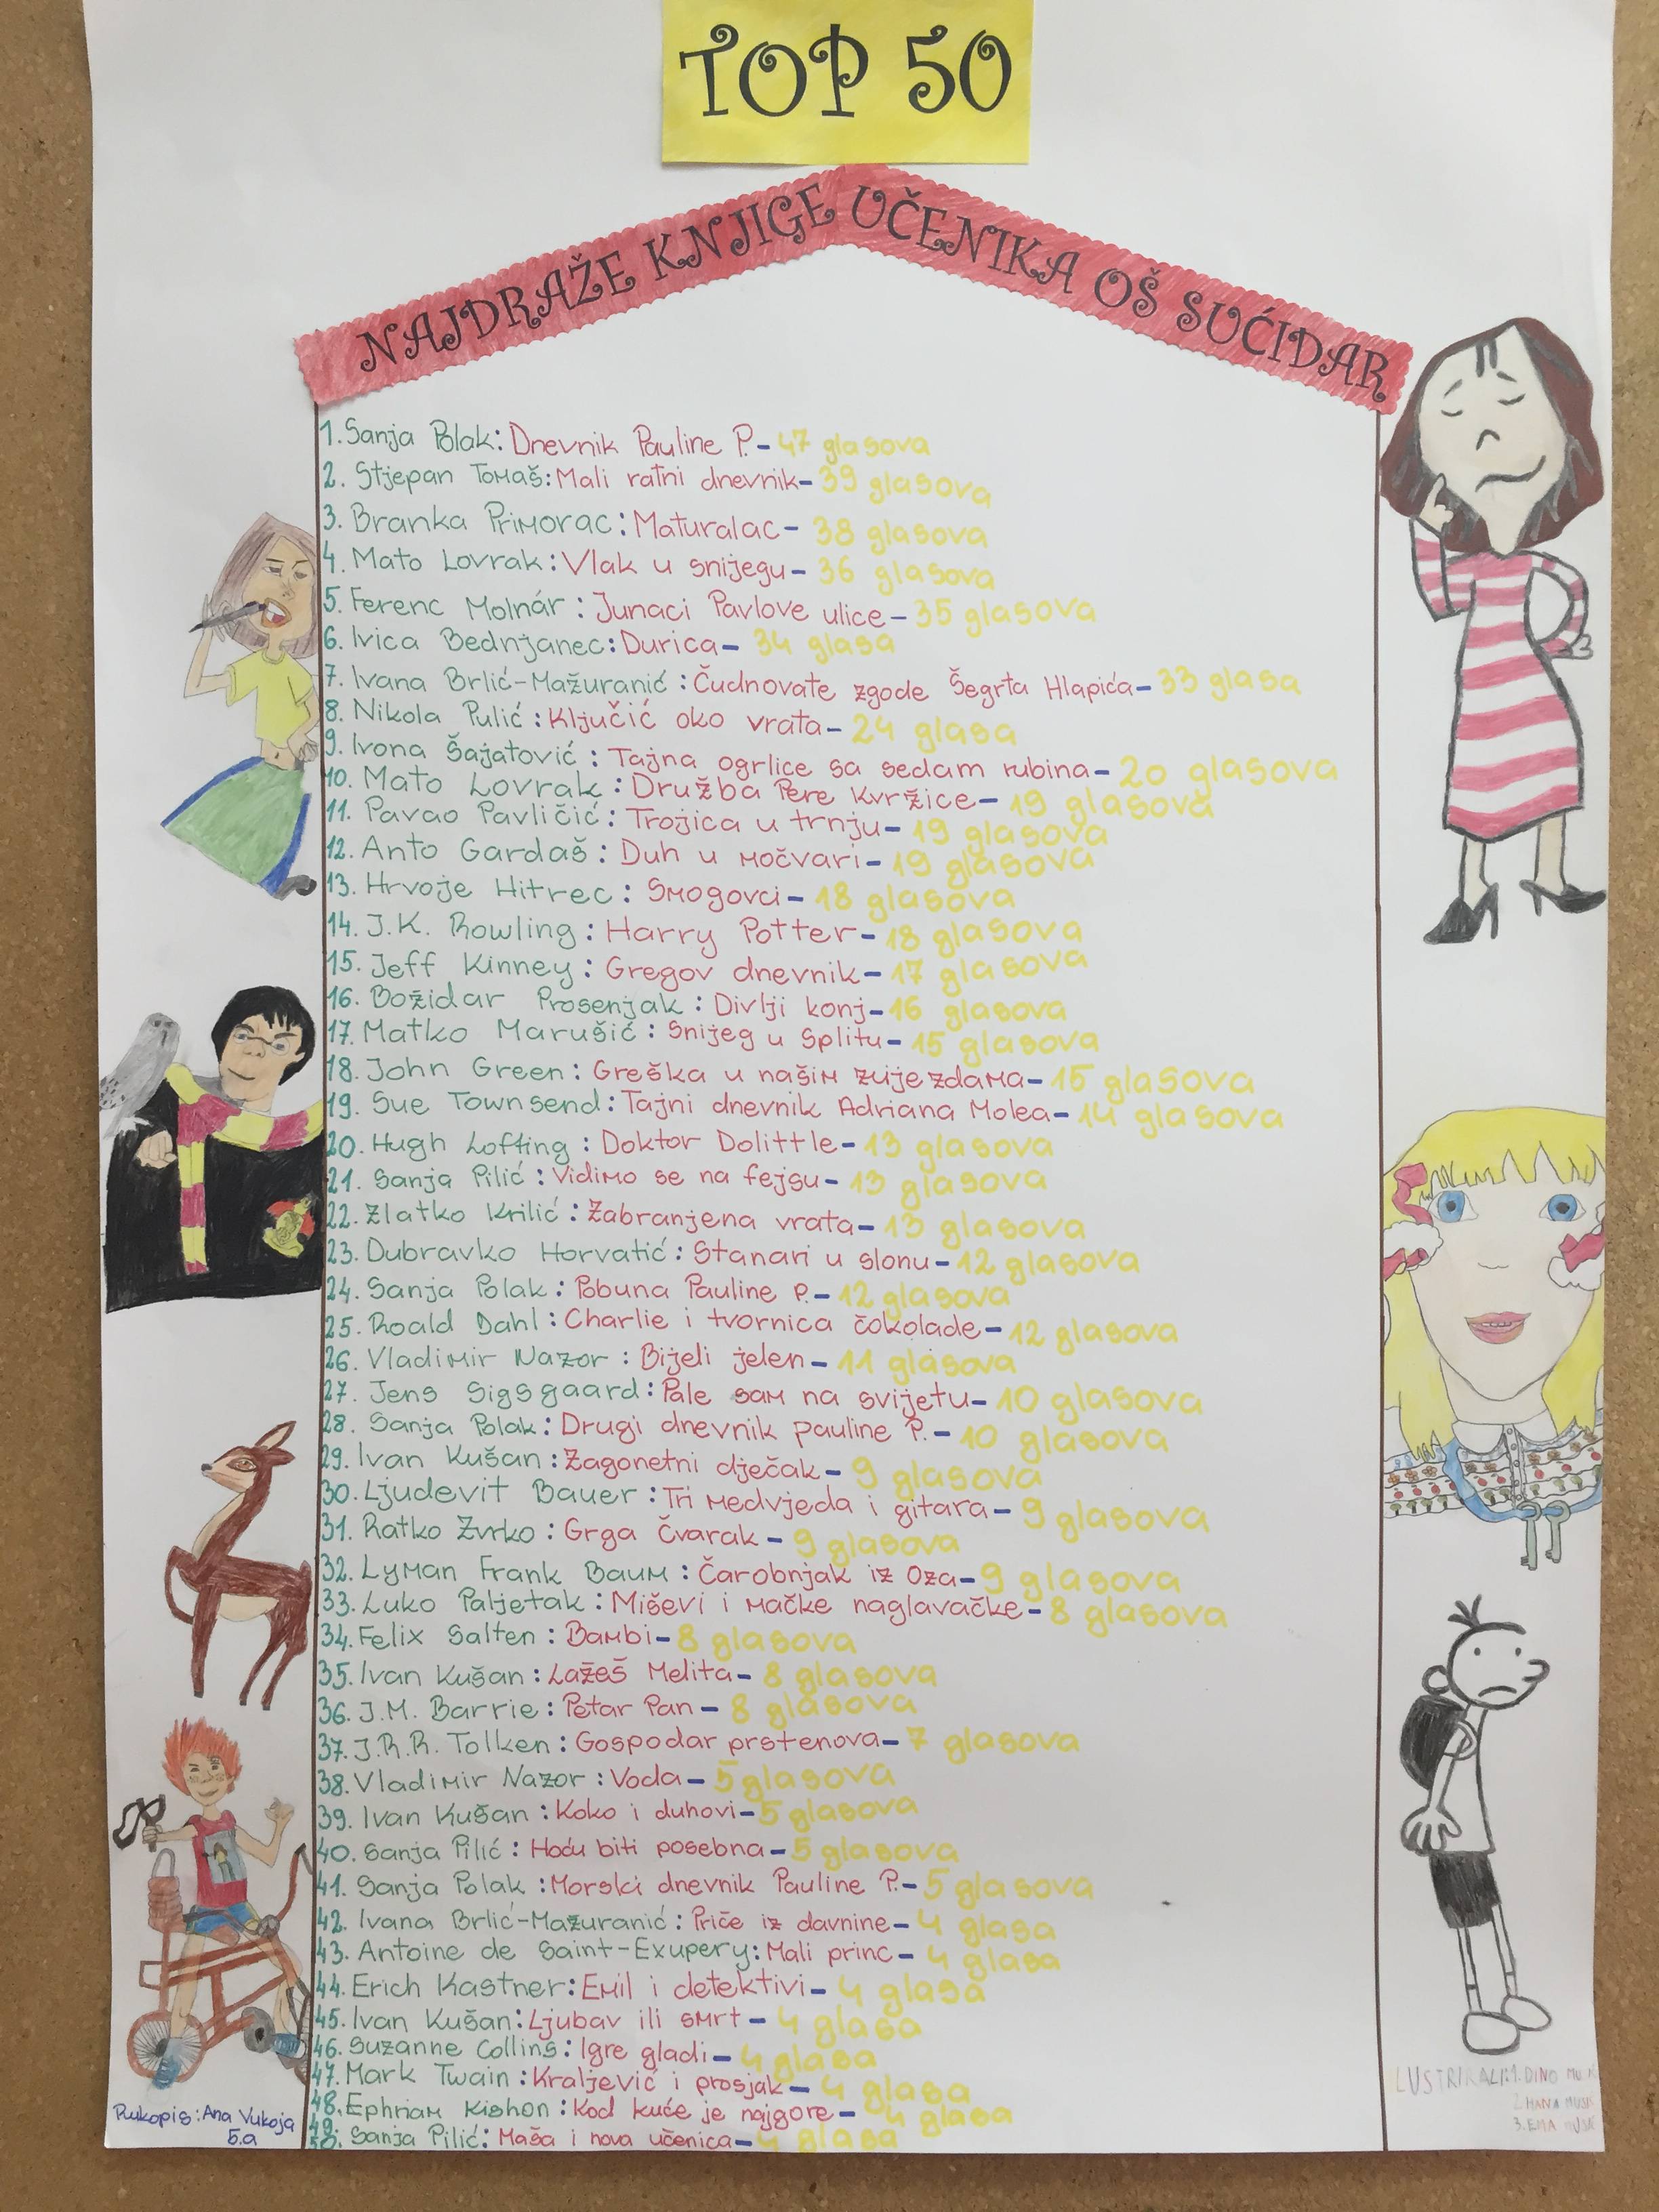 TOP 50
NAJDRAŽE KNJIGE UČENIKA OŠ SUĆIDAR
1. Sanja Polak: Dnevnik Pauline P. - 47 glasova
2. Stjepan Tomaš: Mali ratni dnevnik - 39 glasova
3. Branka Primorac: Maturalac - 38 glasova
4. Mato Lovrak: Vlak u snijegu - 36 glasova
5. Ferenc Molnár: Junaci Pavlove ulice - 35 glasova
6. Ivica Bednjanec: Durica - 34 glasa
7. Ivana Brlić-Mažuranić: Čudnovate zgode Šegrta Hlapića - 33 glasa
8. Nikola Pulić: Ključić oko vrata - 24 glasa
9. Ivona Šajatović: Tajna ogrlice sa sedam rubina - 20 glasova
10. Mato Lovrak: Družba Pere Kvržice - 19 glasova
11. Pavao Pavličić: Trojica u trnju - 19 glasova
12. Anto Gardaš: Duh u močvari - 19 glasova
13. Hrvoje Hitrec: Smogovci - 18 glasova
14. J.K. Rowling: Harry Potter - 18 glasova
15. Jeff Kinney: Gregov dnevnik - 17 glasova
16. Božidar Prosenjak: Divlji konj - 16 glasova
17. Matko Marušić: Snijeg u Splitu - 15 glasova
18. John Green: Greška u našim zvijezdama - 15 glasova
19. Sue Townsend: Tajni dnevnik Adriana Molea - 14 glasova
20. Hugh Lofting: Doktor Dolittle - 13 glasova
21. Sanja Pilić: Vidimo se na fejsu - 13 glasova
22. Zlatko Krilić: Zabranjena vrata - 13 glasova
23. Dubravko Horvatić: Stanari u slonu - 12 glasova
24. Sanja Polak: Pobuna Pauline P. - 12 glasova
25. Roald Dahl: Charlie i tvornica čokolade - 12 glasova
26. Vladimir Nazor: Bijeli jelen - 11 glasova
27. Jens Sigsgaard: Pale sam na svijetu - 10 glasova
28. Sanja Polak: Drugi dnevnik pauline P. - 10 glasova
29. Ivan Kušan: Zagonetni dječak - 9 glasova
30. Ljudevit Bauer: Tri medvjeda i gitara - 9 glasova
31. Ratko Zvrko: Grga Čvarak - 9 glasova
32. Lyman Frank Baum: Čarobnjak iz Oza - 9 glasova
33. Luko Paljetak: Miševi i mačke naglavačke - 8 glasova
34. Felix Salten: Bambi - 8 glasova
35. Ivan Kušan: Lažeš Melita - 8 glasova
36. J.M. Barrie: Petar Pan - 8 glasova
37. J.R.R. Tolken: Gospodar prstenova - 7 glasova
38. Vladimir Nazor: Voda - 5 glasova
39. Ivan Kušan: Koko i duhovi - 5 glasova
40. Sanja Pilić: Hoću biti posebna - 5 glasova
41. Sanja Polak: Morski dnevnik Pauline P. - 5 glasova
42. Ivana Brlić-Mažuranić: Priče iz davnine - 4 glasa
43. Antoine de Saint-Exupery: Mali princ - 4 glasa
44. Erich Kastner: Emil i detektivi - 4 glasa
45. Ivan Kušan: Ljubav ili smrt - 4 glasa
46. Suzanne Collins: Igre gladi - 4 glasa
47. Mark Twain: Kraljević i prosjak - 4 glasa
48. Ephriam Kishon: Kod kuće je najgore - 4 glasa
49.
50. Sanja Pilić: Maša i nova učenica - 4 glasa
Rukopis: Ana Vukoja
5.a
LUSTRIRALI: 1. DINO
2. HANA
3. EMA